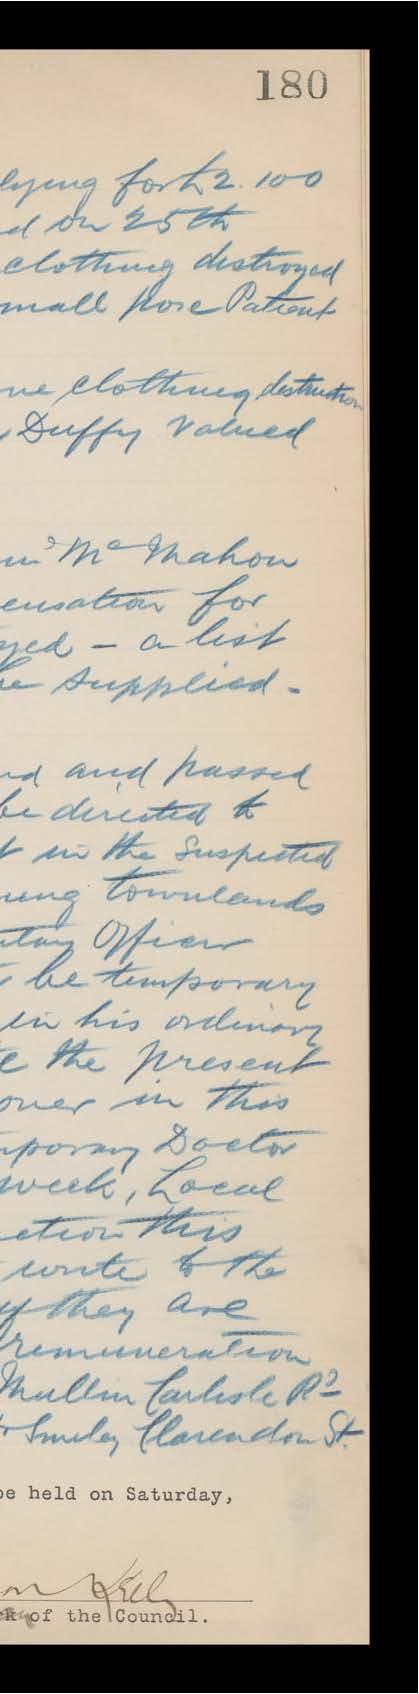 180
lying for £2.100
d on 25th
clothing destroyed
mall poxe Patient
ne clothing destruction
Duffy Valued
Mc Mahon
ensation for
yed - a list
he Supplied -
nd and passed
be directed to
t in the Suspected
ning townlands
itary Officer
be temporary
in his ordinary
te the present
oner in this
mporary Doctor
week, Local
ction this
write to the
if they are
remuneration
Mullin Carlisle Rd
Smiley Clarendon St.
be held on Saturday,
on Kelly
ck of the Council.